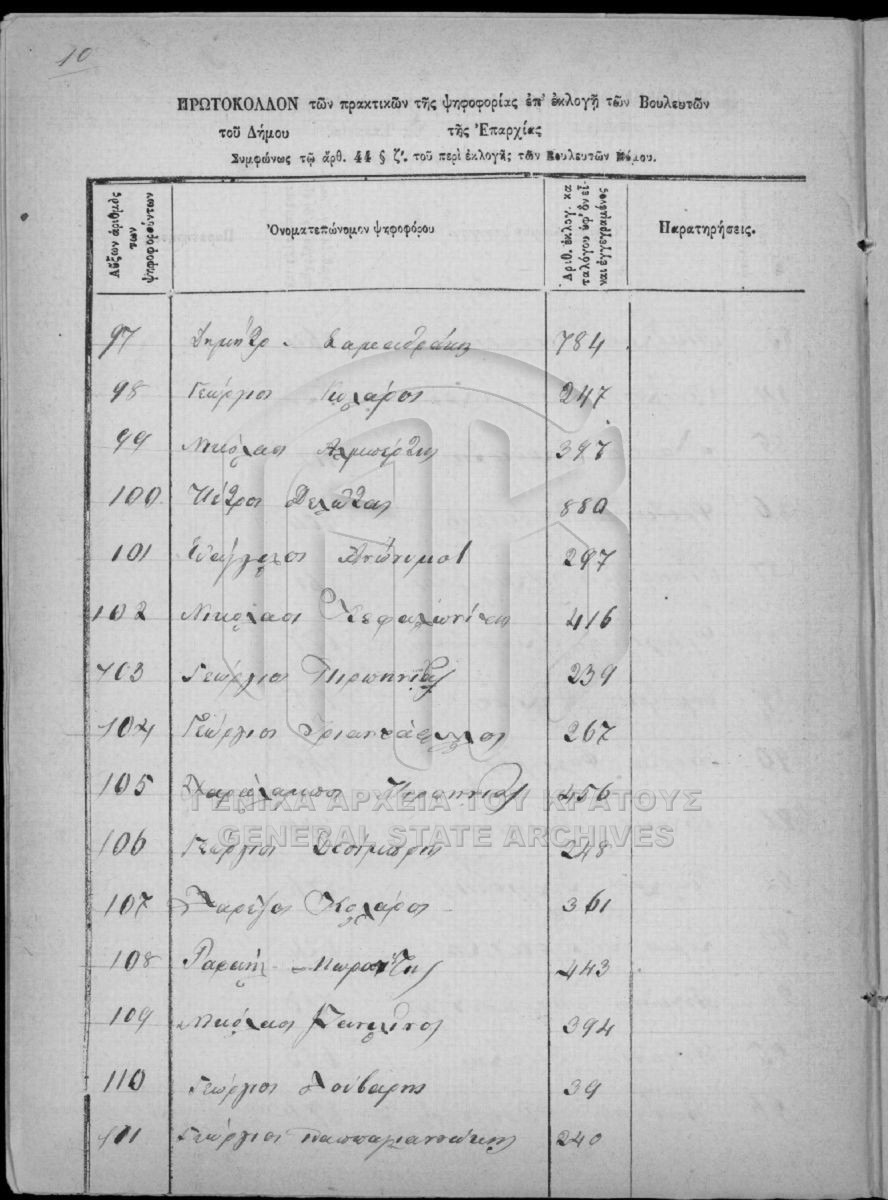 10
ΠΡΩΤΟΚΟΛΛΟΝ τῶν πρακτικῶν τῆς ψηφοφορίας ἐπ' ἐκλογῇ τῶν Βουλευτῶν
τοῦ Δήμου τῆς Ἐπαρχίας
Συμφώνως τῷ ἄρθ. 44 § ζ'. τοῦ περὶ ἐκλογῆς τῶν Βουλευτῶν Νόμου.
Αὔξων ἀριθμὸς τῶν ψηφοφορούντων
Ὀνοματεπώνυμον ψηφοφόρου
Ἀριθ. ἐκλογ. καταλόγου ὑφ' ὃν εἶναι ἐγγεγραμμένος
Παρατηρήσεις.
97 784
98 Γεώργιος Κολάρος 247
99 Νικόλαος Αλμπέρτης 397
100 Πέτρος Δελάτζας 880
101 Ευάγγελος Ανώνυμος 297
102 Νικόλαος Κεφαλωνίτης 416
103 Γεώργιος 239
104 Γεώργιος Τριαντάφυλλος 267
105 Χαράλαμπος 456
106 Γεώργιος Δεσίμπρης 248
107 Κολάρος 361
108 443
109 Νικόλαος 394
110 Γεώργιος Λούβαρης 39
111 Γεώργιος 240
ΓΕΝΙΚΑ ΑΡΧΕΙΑ ΤΟΥ ΚΡΑΤΟΥΣ
GENERAL STATE ARCHIVES